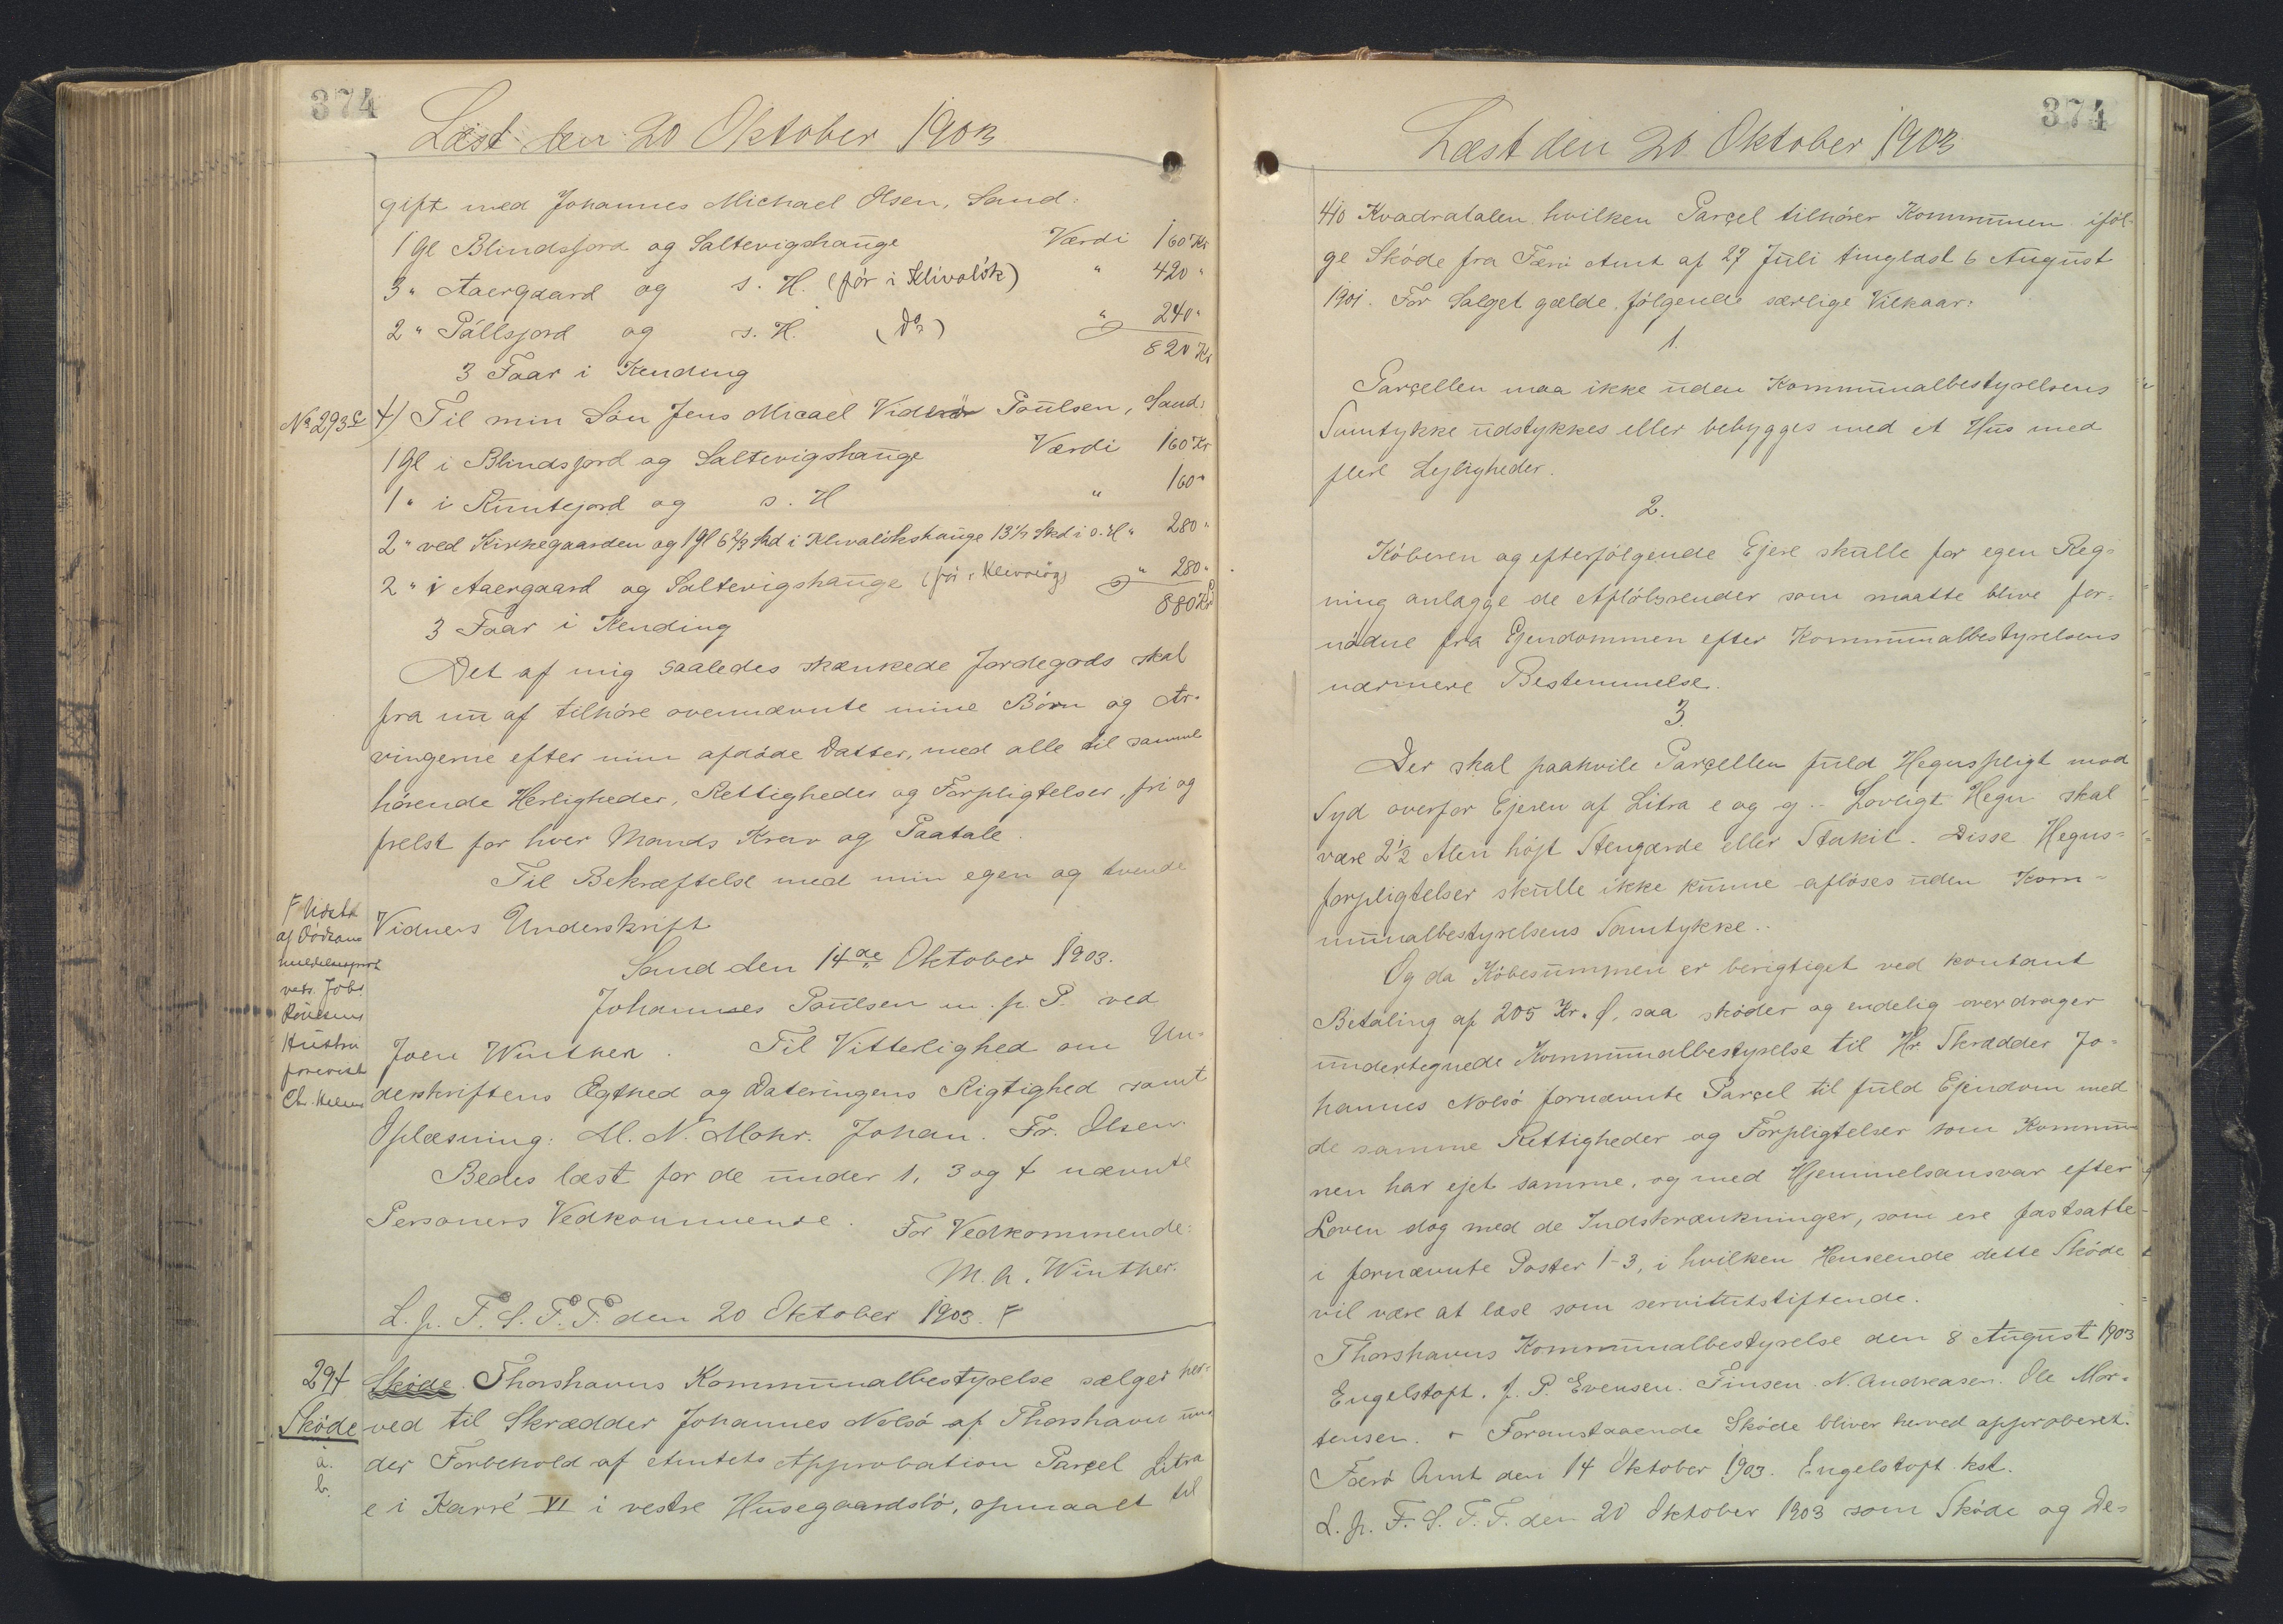 374
Læst den 20 Oktober 1903
gift med Johannes Michael Olsen, Sand:
1 Gl Blindsjord og Saltevigshauge Værdi 160 Kr
3 " Aaergaard og s. H. (før i Klivalók) " 420 "
2 " Pállsjord og s. H. (do) " 240 "
820 Kr
3 Faar i Kending
No 293c 4) Til min Søn Jens Micael Poulsen, Sand:
1 Gl i Blindsjord og Saltevigshauge Værdi 160 Kr
1 " i Runtejord og s. H " 160 "
2 " ved Kirkegaarden og 1 Gl 6 2/3 Skd i Klivalókshauge 13 1/3 Skd i o. H " 280 "
2 " i Aaergaard og Saltevigshauge " 280 "
880 Kr
3 Faar i Kending
Det af mig saaledes skænkede Jordegods skal
fra nu af tilhøre ovennævnte mine Børn og Ar-
vingerne efter min afdøde Datter, med alle til samme
hørende Herligheder, Rettigheder og Forpligtelser, fri og
frelst for hver Mands Krav og Paatale.
Til Bekræftelse med min egen og tvende
Vidners Underskrift
Sand den 14de Oktober 1903.
Johannes Poulsen m. p. P. ved
Joen Winther. Til Vitterlighed om Un-
derskriftens Ægthed og Dateringens Rigtighed samt
Oplæsning: M. N. Mohr. Johan. Fr. Olsen.
Bedes læst for de under 1, 3 og 4 nævnte
Personers Vedkommende.
For Vedkommende:
M. A. Winther.
L. p. F. S. T. T. den 20 Oktober 1903. F
F Udskr
af Dødsan-
meldelsesprot
vedr. Johs.
Poulsens
Hustru
forevist
294 Skøde. Thorshavns Kommunalbestyrelse sælger her-
Skøde ved til Skrædder Johannes Nolsø af Thorshavn un-
a. der Forbehold af Amtets Approbation Parçel Litra
b. e i Karré VI i vestre Husegaardsbø, opmaalt til
374
Læst den 20 Oktober 1903
410 Kvadratalen hvilken Parçel tilhører Kommunen iføl-
ge Skøde fra Færø Amt af 27 Juli tinglæst 6 August
1901. For Salget gælde følgende særlige Vilkaar:
1.
Parçellen maa ikke uden Kommunalbestyrelsens
Samtykke udstykkes eller bebygges med et Hus med
flere Lejligheder.
2.
Køberen og efterfølgende Ejere skulle for egen Reg-
ning anlægge de Afløbsrender som maatte blive for-
nødne fra Ejendommen efter Kommunalbestyrelsens
nærmere Bestemmelse.
3.
Der skal paahvile Parçellen fuld Hegnspligt mod
Syd overfor Ejeren af Litra e og g. Lovligt Hegn skal
være 2 1/2 Alen højt Stengærde eller Stakit. Disse Hegns-
forpligtelser skulle ikke kunne afløses uden Kom-
munalbestyrelsens Samtykke.
Og da Købesummen er berigtiget ved kontant
Betaling af 205 Kr. Ø, saa skøder og endelig overdrager
undertegnede Kommunalbestyrelse til Hr. Skrædder Jo-
hannes Nolsø fornævnte Parçel til fuld Ejendom med
de samme Rettigheder og Forpligtelser som Kommu-
nen har ejet samme, og med Hjemmelsansvar efter
Loven dog med de Indskrænkninger, som ere fastsatte
i fornævnte Poster 1-3, i hvilken Henseende dette Skøde
vil være at læse som servitutstiftende.
Thorshavns Kommunalbestyrelse den 8 August 1903
Engelstoft. J. P. Evensen. Finsen. N. Andreasen. Ole Mor-
tensen. Foranstaaende Skøde bliver herved approberet.
Færø Amt den 14 Oktober 1903. Engelstoft kst.
L. p. F. S. T. T. den 20 Oktober 1903 som Skøde og De-